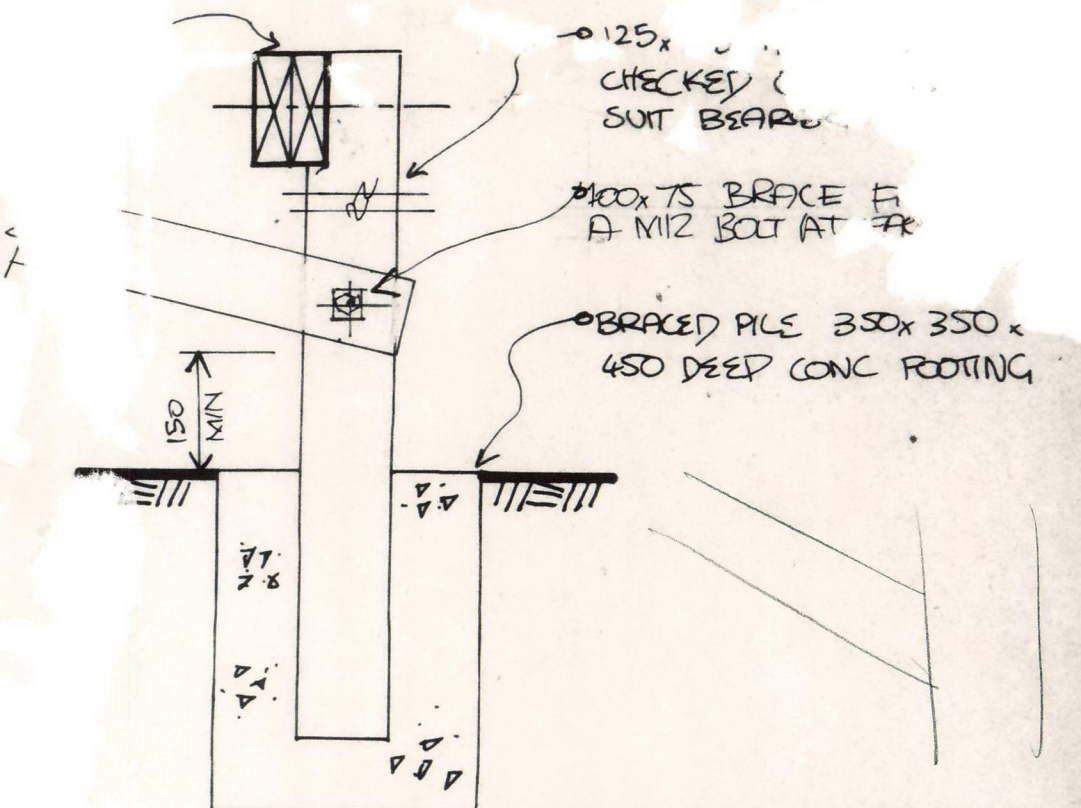 125x
CHECKED
SUIT
100x75 BRACE
A M12 BOLT AT
BRACED PILE 350x350x
450 DEEP CONC FOOTING
150
MIN